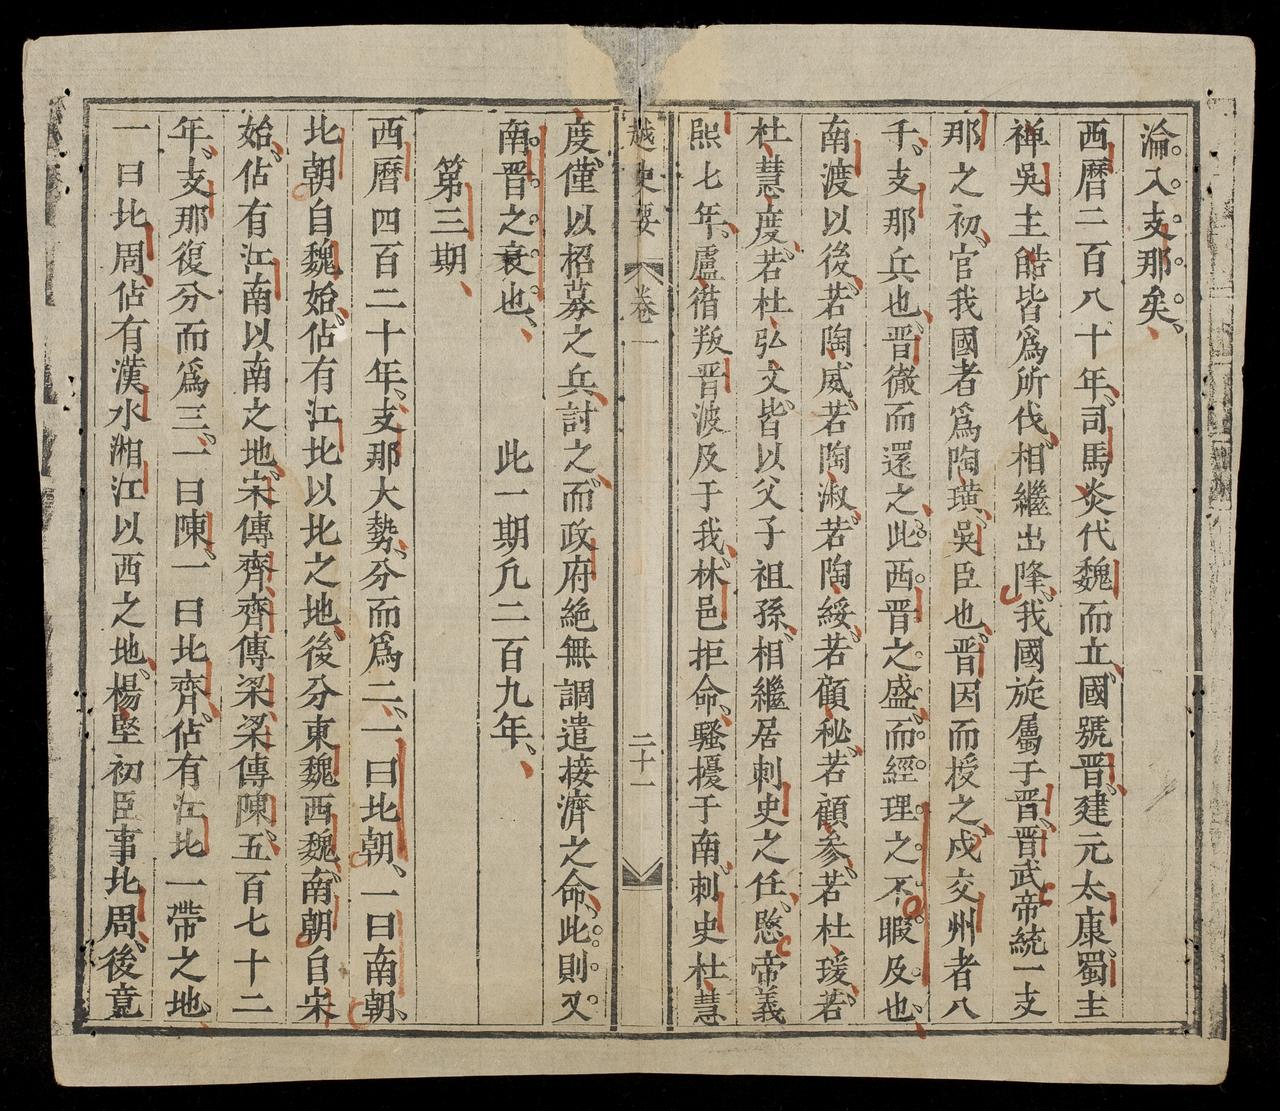 淪入支那矣、
西曆二百八十年、司馬炎代魏而立、國號晋、建元太康、蜀主
禅吳主皓皆爲所伐、相繼出降、我國旋屬于晋、晋武帝統一支
那之初、官我國者爲陶璜、吳臣也、晋因而授之、戍交州者八
千、支那兵也、晋徹而還之、此西晋之盛、而經理之不暇及也、
南渡以後、若陶威、若陶淑、若陶綏、若顧秘、若顧參、若杜瑗、若
杜慧度、若杜弘文、皆以父子祖孫、相繼居刺史之任、愍帝義
熙七年、盧循叛晋波及于我、林邑拒命、騷擾于南、刺史杜慧
越史要 卷一 二十一
度、僅以招募之兵討之、而政府絶無調遣接濟之命、此則又
南晋之衰也、 此一期凢二百九年、
第三期、
西曆四百二十年、支那大勢、分而爲二、一曰北朝、一曰南朝、
北朝自魏始、佔有江北以北之地、後分東魏西魏、南朝自宋
始、佔有江南以南之地、宋傳齊、齊傳梁、梁傳陳、五百七十二
年、支那復分而爲三、一曰陳、一曰北齊、佔有江北一帶之地、
一曰北周、佔有漢水湘江以西之地、楊堅初臣事北周、後竟